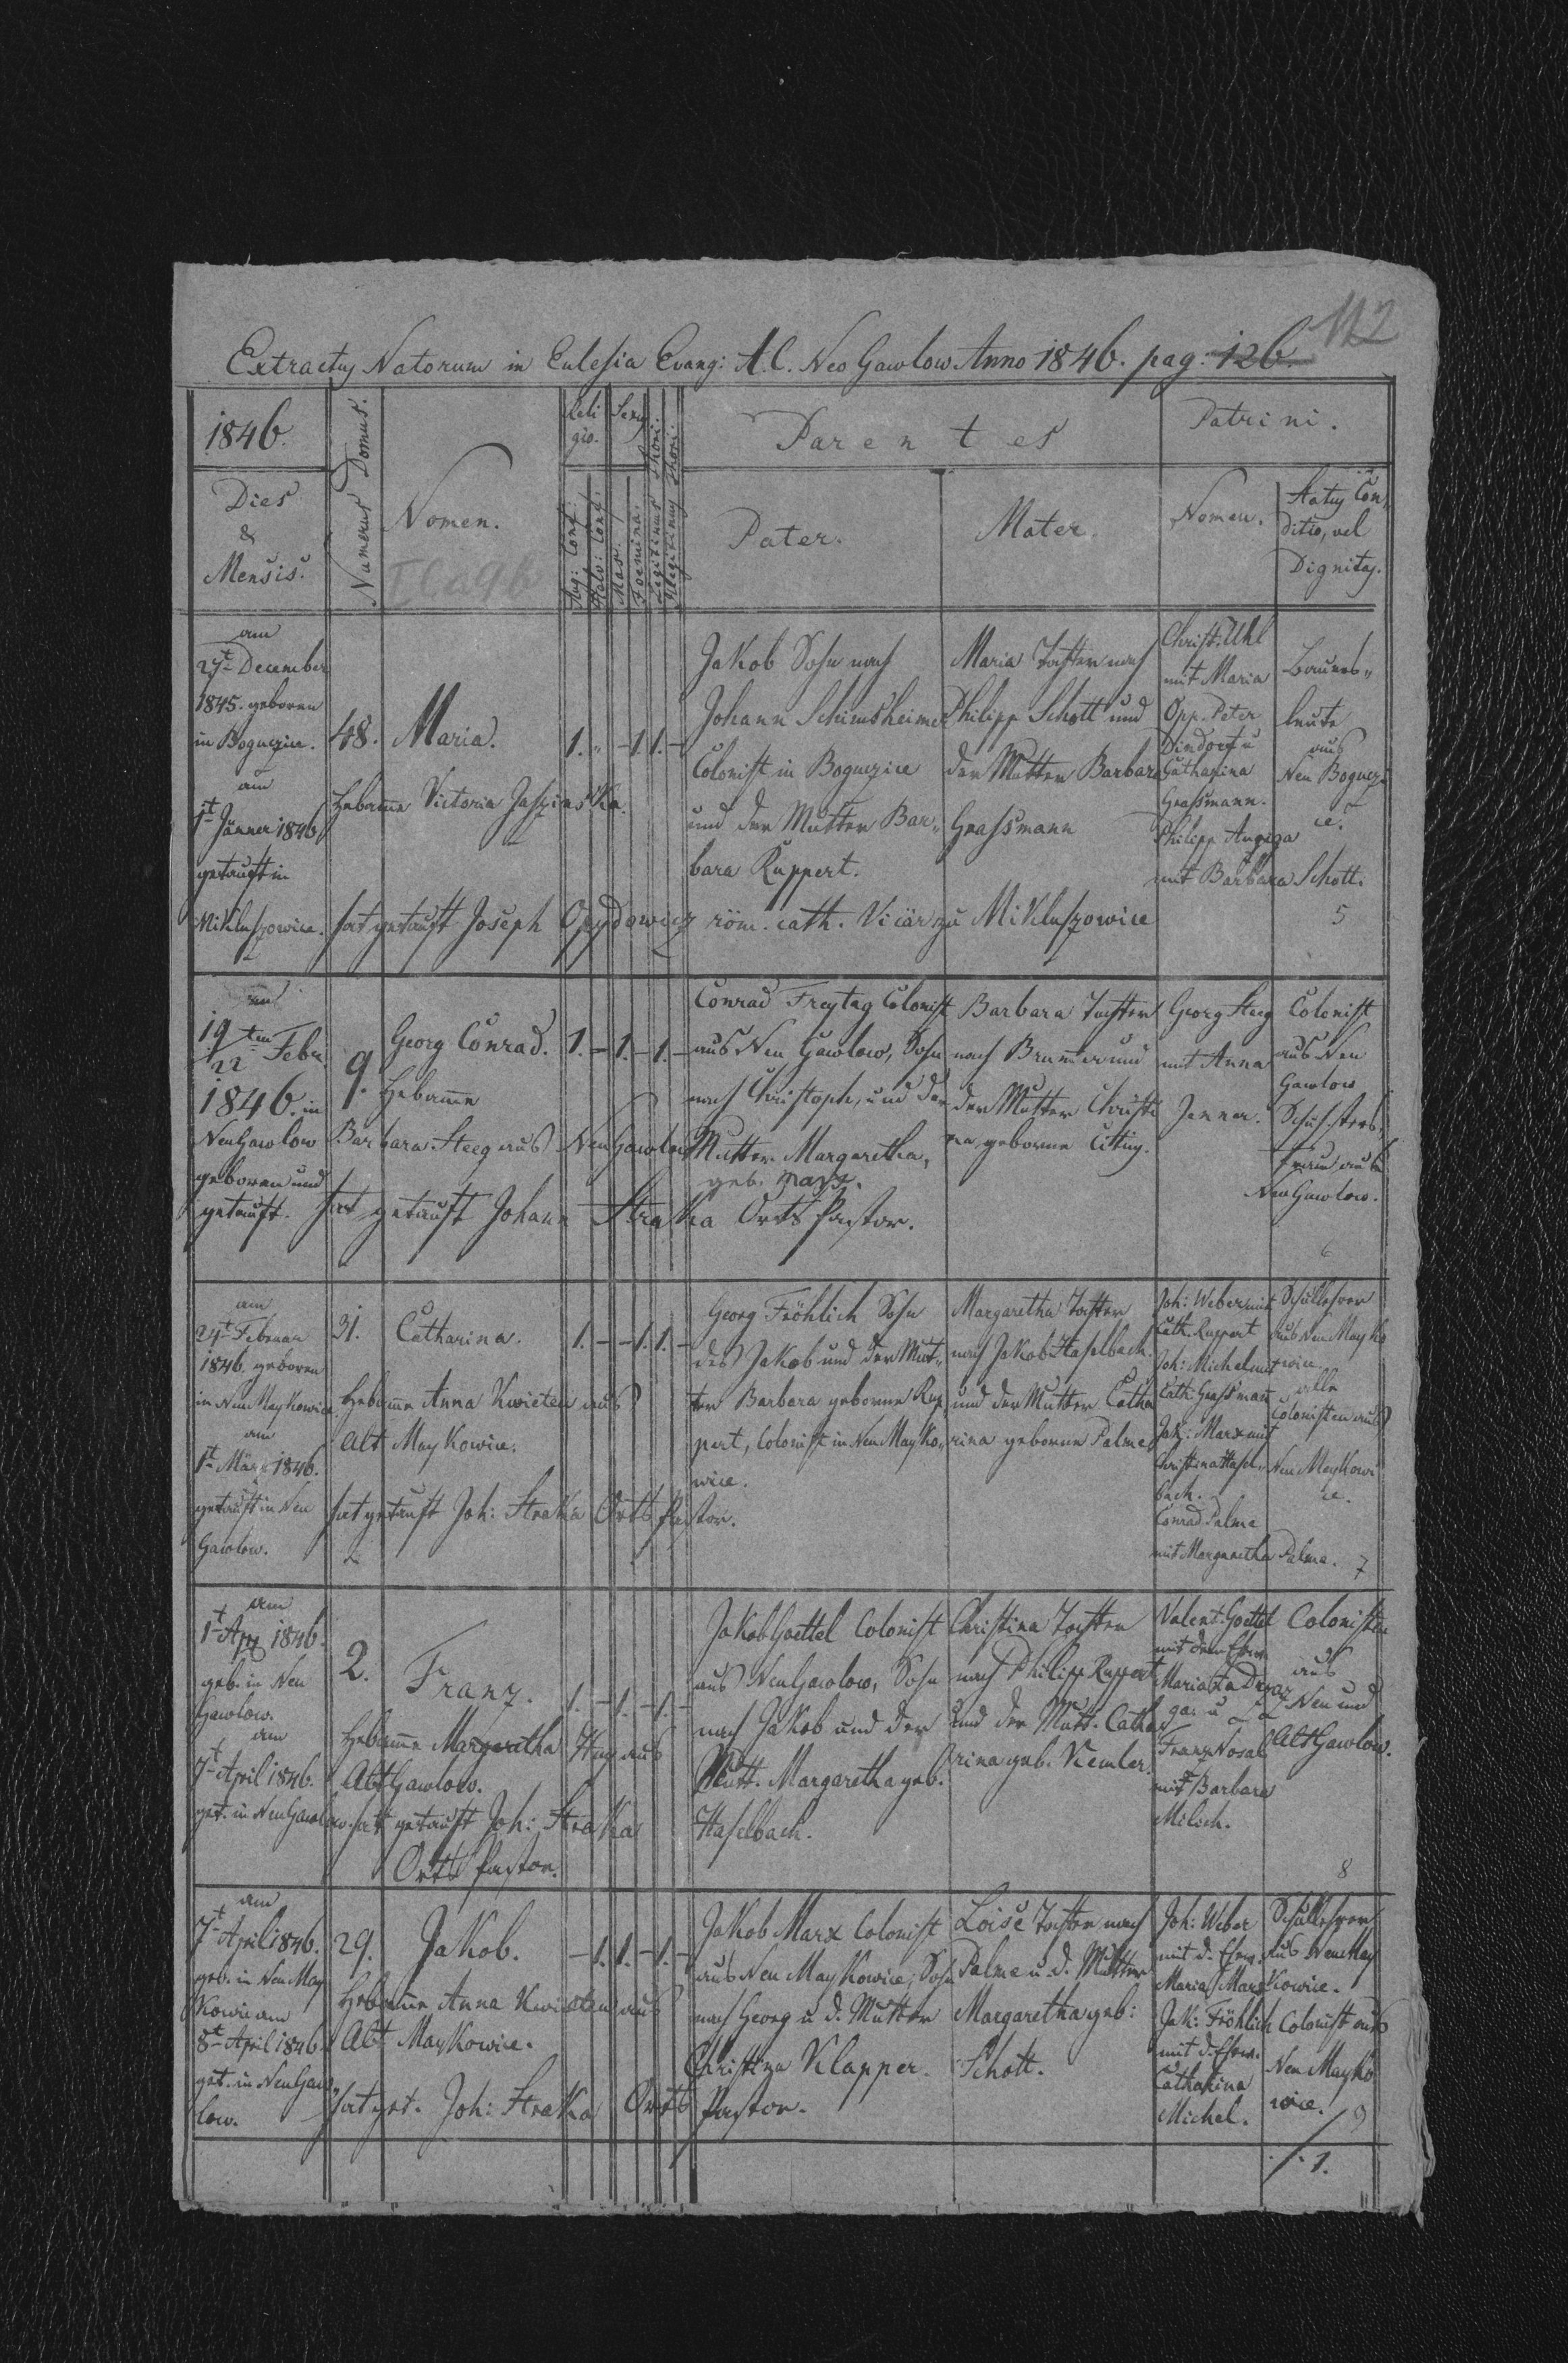 112
Extractus Natorum in Eclesia Evang: A.C. Neo Gawlow Anno 1846. pag: 126.
1846.
Dies
&
Mensis.
Numerus Domus.
Nomen.
Reli
gio.
Sexus
Thori.
Thori.
Aug: Conf.
Helv: Conf.
Mas.
Foemina.
Legitimus
Illegitimus
Parentes
Pater.
Mater.
Patrini.
Nomen.
Status Con,
ditio, vel
Dignitas.
am
27t December
1845. geboren
in Bogucice.
am
1t Jänner 1846
getauft in
Mikluszowice.
48.
Maria.
1. " - 1. 1. -
Hebame Victoria
Jakob Sohn nach
Johann Schimsheimer
Colonist in Bogucice
und der Mutter Bar,,
bara Ruppert.
Maria Tochter nach
Philipp Schott und
der Mutter Barbara
Grassmann
Christ. Uhl
mit Maria
Opp. Peter
Dindorf u
Catharina
Grassmann.
Philipp
mit Barbara Schott.
Bauers,,
leute
aus
Neu Boguczi
ce.
hat getauft Joseph Opydowicz röm. cath. Vicär zu Mikluszowice
5
am
19ten
22 Febr.
1846. in
Neu Gawlow
geboren und
getauft.
9.
Georg Conrad.
1. - 1. - 1. -
Hebame
Barbara Steeg aus Neu Gawlow
Conrad Freytag Colonist
aus Neu Gawlow, Sohn
nach Christoph, und der
Mutter Margaretha,
geb. Marx.
Barbara Tochter
nach Brummer und
der Mutter Christi
na geborne
Georg Steeg
mit Anna
Jenner.
Colonist
aus Neu
Gawlow
Schusters,,
frau aus
Neu Gawlow.
hat getauft Johann Straka Orts Pastor.
6
am
24t Februar
1846. geboren
in Neu Maykowice
am
1t März 1846.
getauft in Neu
Gawlow.
31.
Catharina.
1. - - 1. 1. -
Hebame Anna Kwieten aus
Alt Maykowice.
Georg Fröhlich Sohn
des Jakob und der Mut,,
ter Barbara geborne Rup,
pert, Colonist in Neu Mayko,,
wice.
Margaretha Tochter
nach Jakob Haselbach
und der Mutter Catha
rina geborne Palme
Joh: Weber mit
Cath. Ruppert
Joh: Michel mit
Cath: Grassmann
Jak: Marx mit
Christina Hasel,,
bach.
Conrad Palme
mit Margaretha Palme.
Schullehrer
aus Neu Mayko
wice
alle
Colonisten aus
Neu Maykowi
ce.
hat getauft Joh: Straka Orts Pastor.
7
am
1t Apr 1846.
geb. in Neu
Gawlow.
am
7t April 1846.
get. in Neu Gawlow.
2.
Franz.
1. - 1. - 1. -
Hebame Margaretha Steeg aus
Alt Gawlow.
hat getauft Joh: Straka
Orts Pastor.
Jakob Goettel Colonist
aus Neu Gawlow, Sohn
nach Jakob und der
Mutt. Margaretha geb.
Haselbach.
Christina Tochter
nach Philipp Ruppert
und der Mutt. Catha
rina geb. Kemler.
Valent. Goettel
mit der Ehew.
Franz Nosal
mit Barbara
Milich.
Colonisten
aus
Neu und
Alt Gawlow.
8
am
7t April 1846.
geb. in Neu May
kowi am
8t April 1846
get. in Neu Gaw,,
low.
29.
Jakob.
- 1. 1. - 1. -
Hebame Anna Kwieten aus
Alt Maykowice.
Jakob Marx Colonist
aus Neu Maykowice, Sohn
nach Georg u d. Mutter
Christina Klapper.
Loise Tochter nach
Palme u. d. Mutter
Margaretha geb:
Schott.
Joh: Weber
mit d. Ehew.
Maria Marx
Jak: Fröhlich
mit d. Ehew.
Catharina
Michel.
Schullehrer
aus Neu May
kowice.
Colonist aus
Neu Mayko
wice.
hat get. Joh: Straka Orts Pastor.
9
./. 1.